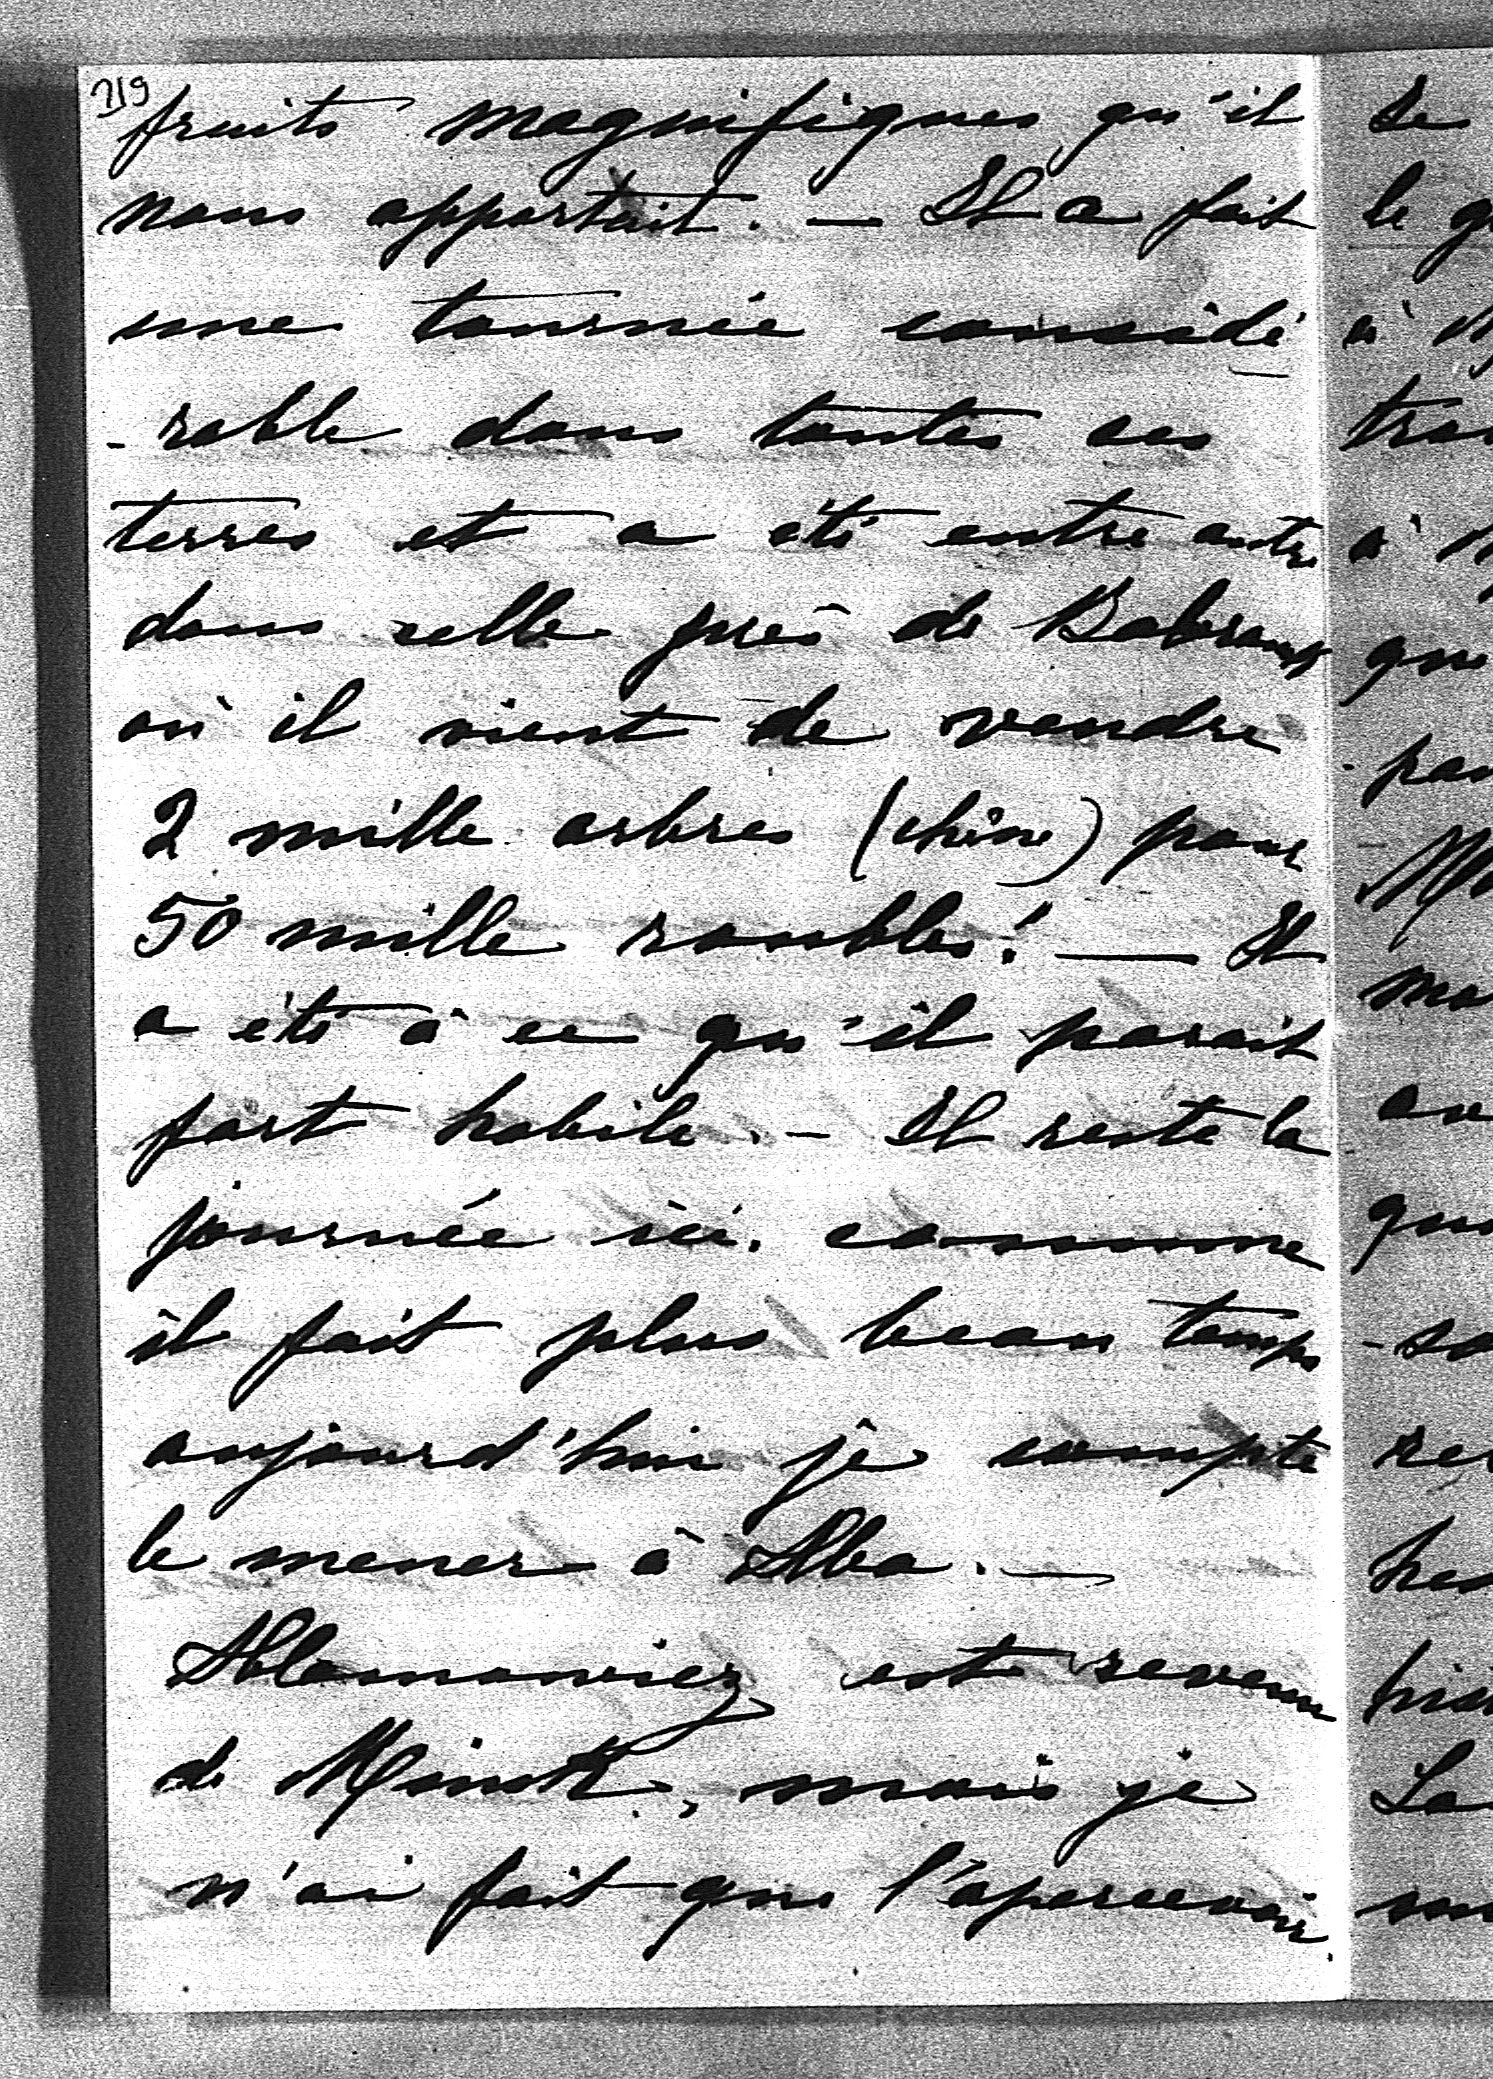 219
fruits magnifiques qu'il
nous apportait. — Il a fait
une tournée considé
-rable dans toutes ses
terres et a été entre autre
dans celle près de
où il vient de vendre
2 mille arbres (chêne) pour
50 mille roubles! — Il
a été à ce qu'il parait
fort habile. — Il reste la
journée ici. comme
il fait plus beau temps
aujourd'hui je compte
le mener à Alba. —
est revenu
de Minsk, mais je
n'ai fait que l'apercevoir.